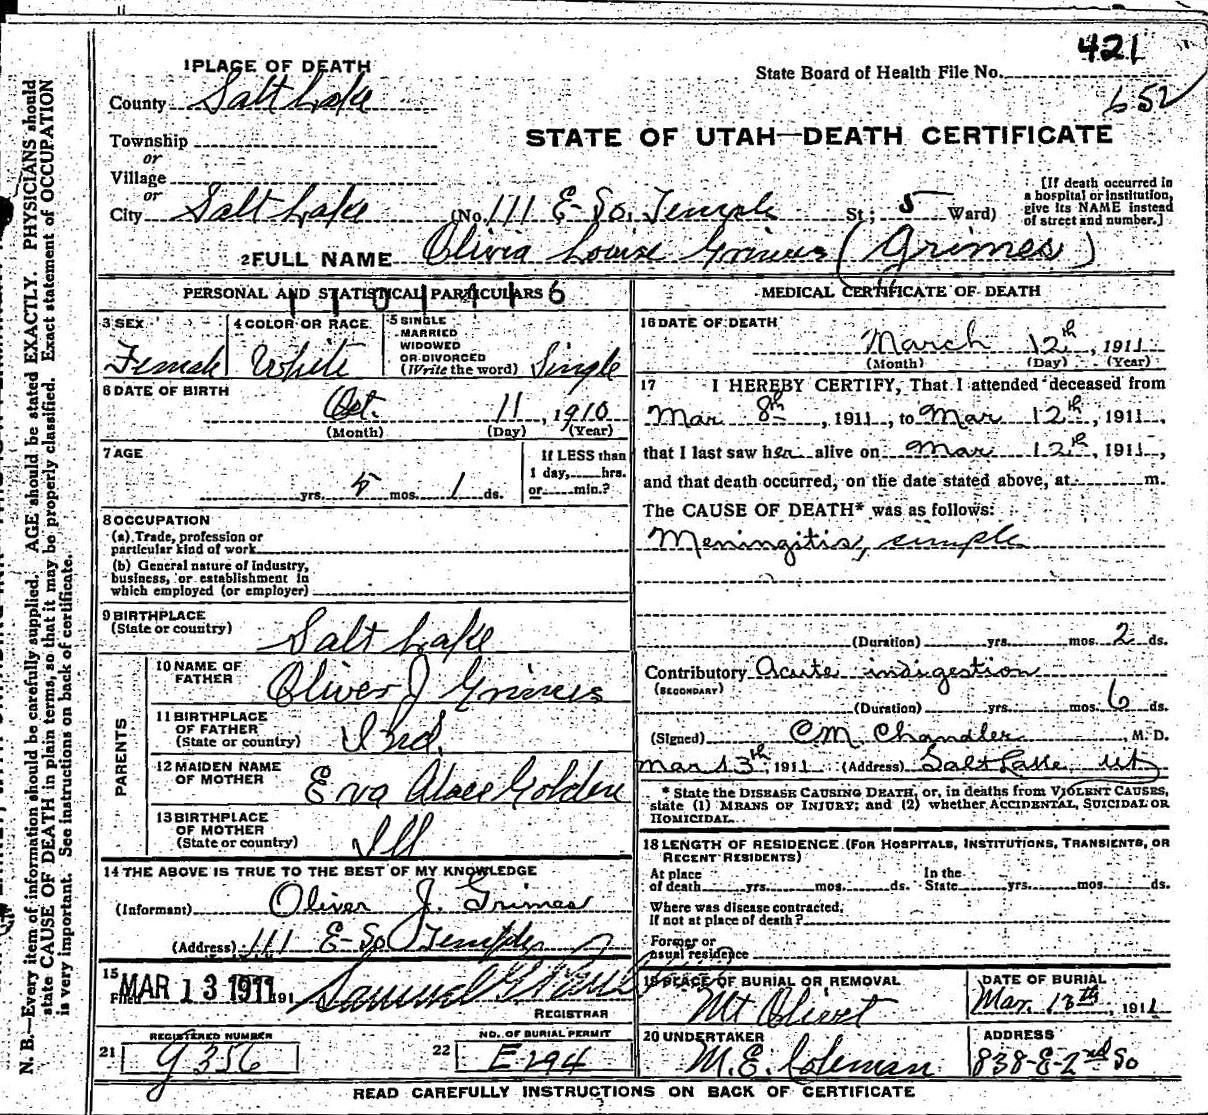 421
1 PLACE OF DEATH
State Board of Health File No.
County Salt Lake
652
STATE OF UTAH—DEATH CERTIFICATE
Township
or
Village
or
City Salt Lake (No. 111 E-So. Temple St; 5 Ward)
[If death occurred in a hospital or institution, give its NAME instead of street and number.]
2 FULL NAME Olivia Louise Grimes (Grimes)
PERSONAL AND STATISTICAL PARTICULARS
3 SEX Female
4 COLOR OR RACE White
5 SINGLE MARRIED WIDOWED OR DIVORCED (Write the word) Single
6 DATE OF BIRTH Oct. 11, 1910
(Month) (Day) (Year)
7 AGE
yrs. 5 mos. 1 ds.
If LESS than 1 day, hrs. or min.?
8 OCCUPATION
(a) Trade, profession or particular kind of work
(b) General nature of industry, business, or establishment in which employed (or employer)
9 BIRTHPLACE (State or country) Salt Lake
PARENTS
10 NAME OF FATHER Oliver J Grimes
11 BIRTHPLACE OF FATHER (State or country) Ind.
12 MAIDEN NAME OF MOTHER Eva Golden
13 BIRTHPLACE OF MOTHER (State or country) Ill
14 THE ABOVE IS TRUE TO THE BEST OF MY KNOWLEDGE
(Informant) Oliver J. Grimes
(Address) 111 E-So Temple
15 Filed MAR 13 1911 191 Samuel G.
REGISTRAR
REGISTERED NUMBER
21 G 356
NO. OF BURIAL PERMIT
22 E 294
MEDICAL CERTIFICATE OF DEATH
16 DATE OF DEATH
March 12th, 1911
(Month) (Day) (Year)
17 I HEREBY CERTIFY, That I attended deceased from
Mar 8th, 1911, to Mar 12th, 1911,
that I last saw her alive on Mar 12th, 1911,
and that death occurred, on the date stated above, at m.
The CAUSE OF DEATH* was as follows:
Meningitis, simple
(Duration) yrs. mos. 2 ds.
Contributory Acute indigestion
(SECONDARY)
(Duration) yrs. mos. 6 ds.
(Signed) C M Chandler, M. D.
Mar 13th, 1911 (Address) Salt Lake, Ut
* State the DISEASE CAUSING DEATH, or, in deaths from VIOLENT CAUSES,
state (1) MEANS OF INJURY; and (2) whether ACCIDENTAL, SUICIDAL OR
HOMICIDAL.
18 LENGTH OF RESIDENCE (FOR HOSPITALS, INSTITUTIONS, TRANSIENTS, OR
RECENT RESIDENTS)
At place of death yrs. mos. ds. In the State yrs. mos. ds.
Where was disease contracted,
if not at place of death?
Former or
usual residence
19 PLACE OF BURIAL OR REMOVAL
Mt Olivet
DATE OF BURIAL
Mar. 13th, 1911
20 UNDERTAKER
M. E. Coleman
ADDRESS
838-E-2nd So
READ CAREFULLY INSTRUCTIONS ON BACK OF CERTIFICATE
N. B.—Every item of information should be carefully supplied. AGE should be stated EXACTLY. PHYSICIANS should
state CAUSE OF DEATH in plain terms, so that it may be properly classified. Exact statement of OCCUPATION
is very important. See instructions on back of certificate.